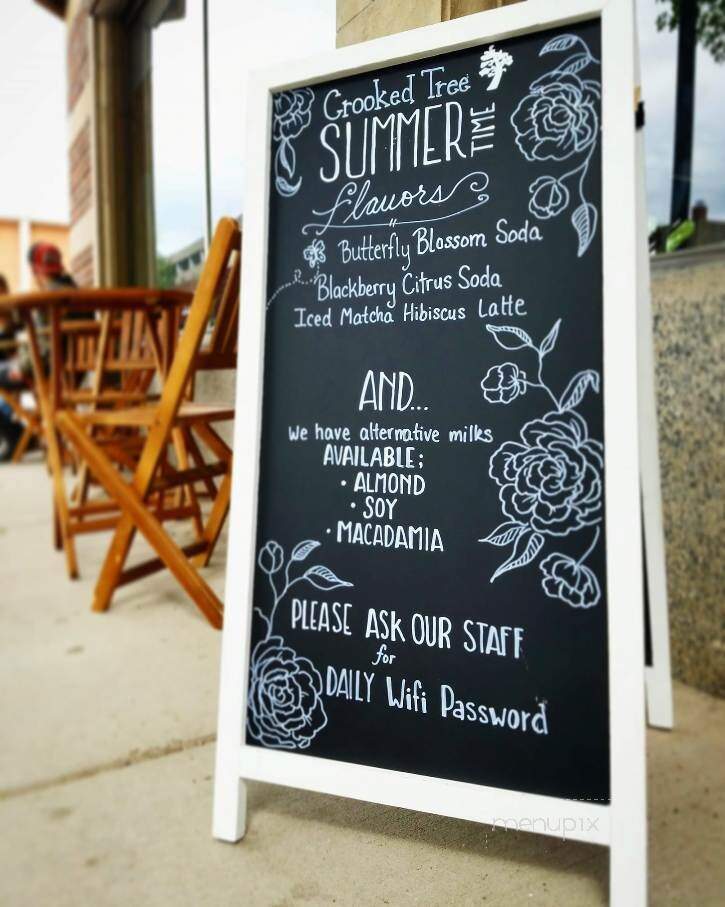 Crooked Tree
SUMMER TIME
Flavors
Butterfly Blossom Soda
Blackberry Citrus Soda
Iced Matcha Hibiscus Latte
AND...
We have alternative milks
AVAILABLE;
• ALMOND
• SOY
• MACADAMIA
PLEASE ASK OUR STAFF
for
DAILY Wifi Password
menupix